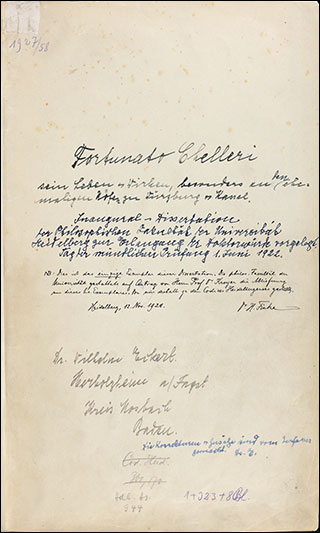 1927/58
Fortunato Chelleri
sein Leben u. Wirken, besonders an den ehe-
maligen Höfen zu Würzburg u. Kassel.
Inaugural-Dissertation
der Philosophischen Fakultät der Universität
Heidelberg zur Erlangung der Doktorwürde vorgelegt.
Tag der mündlichen Prüfung 1. Juni 1922.
NB. Dies ist das einzige Exemplar dieser Dissertation. Die philos. Fakultät der
Universität gestattete auf Antrag von Herrn Prof. Dr. Kroyer die
Heidelberg, 13. Nov. 1928.
Dr. Wilhelm Eckert.
a/Jagst
Kreis Mosbach
Baden.
Die Korrekturen u. sind vom Verfasser
gemacht. Dr. E.
Cod. Heid.
944
1+323+8 Bl.